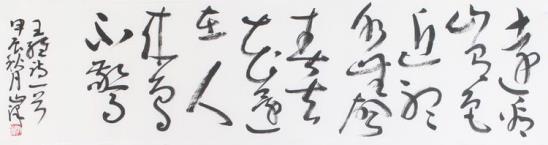 遠看
山有色
近聽
水無聲
春去
花還
在人
來鳥
不驚
王維詩一首
甲辰秋月